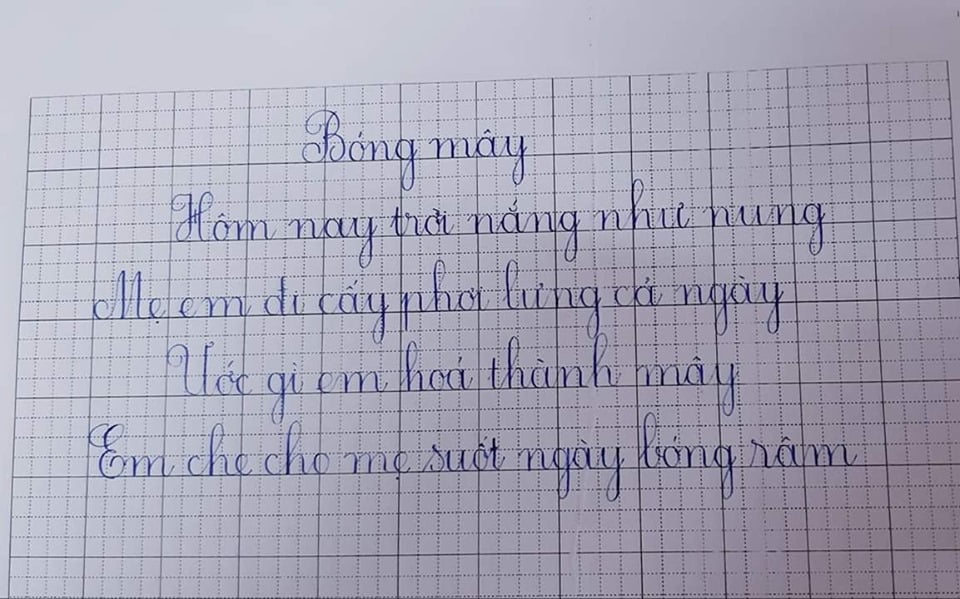 Bóng mây
Hôm nay trời nắng như nung
Mẹ em đi cấy phơi lưng cả ngày
Ước gì em hoá thành mây
Em che cho mẹ suốt ngày bóng râm